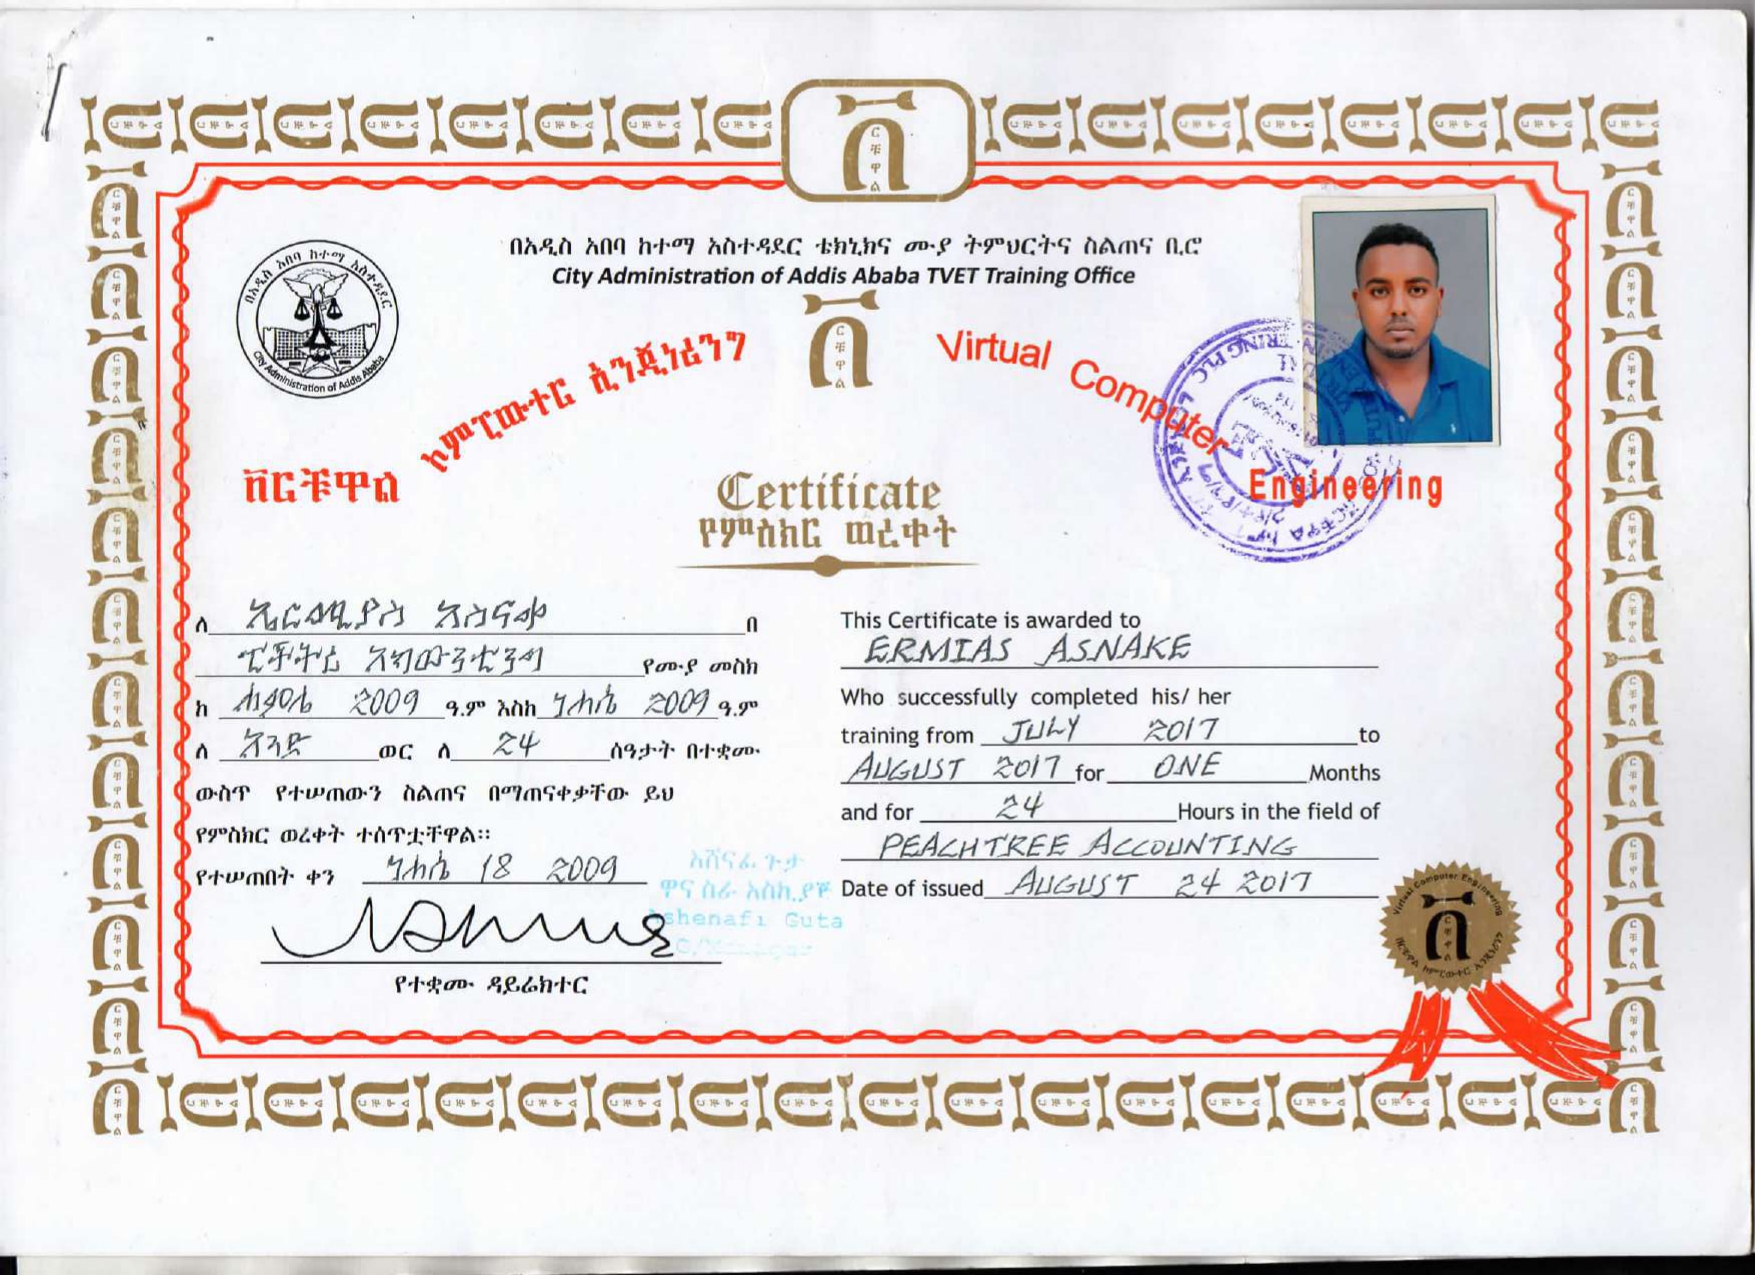 በአዲስ አበባ ከተማ አስተዳደር ቴክኒክና ሙያ ትምህርትና ስልጠና ቢሮ
City Administration of Addis Ababa TVET Training Office
በአዲስ አበባ ከተማ አስተዳደር
City Administration of Addis Ababa
ቨርቹዋል ኮምፒውተር ኢንጂነሪንግ
Virtual Computer Engineering
Certificate
የምስክር ወረቀት
ለ ኤርሚያስ አስናቀ በ
ፒችትሪ አካውንቲንግ የሙያ መስክ
ከ ሐምሌ 2009 ዓ.ም እስከ ነሐሴ 2009 ዓ.ም
ለ አንድ ወር ለ 24 ሰዓታት በተቋሙ
ውስጥ የተሠጠውን ስልጠና በማጠናቀቃቸው ይህ
የምስክር ወረቀት ተሰጥቷቸዋል፡፡
የተሠጠበት ቀን ነሐሴ 18 2009
የተቋሙ ዳይሬክተር
አሸናፊ ጉታ
ዋና ስራ አስኪያጅ
Ashenafi Guta
This Certificate is awarded to
ERMIAS ASNAKE
Who successfully completed his/ her
training from JULY 2017 to
AUGUST 2017 for ONE Months
and for 24 Hours in the field of
PEACHTREE ACCOUNTING
Date of issued AUGUST 24 2017
Virtual Computer Engineering
ቨርቹዋል ኮምፒውተር ኢንጂነሪንግ